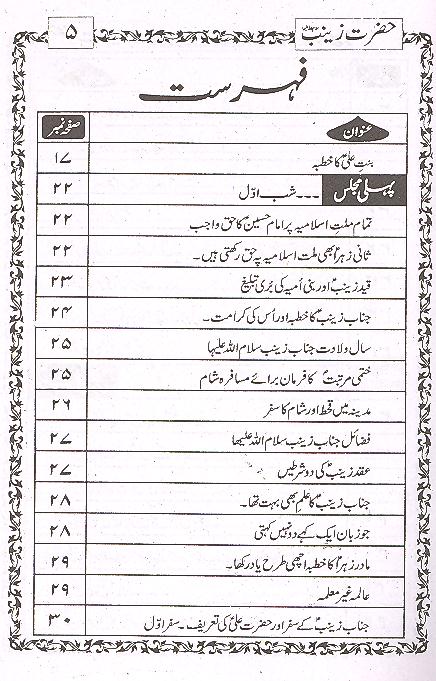 حضرت زینبؑ ۵
فہرست
عنوان صفحہ نمبر
بنتِ علیؑ کا خطبہ ۱۷
پہلی مجلس ۔۔۔ شب اوّل ۲۲
تمام ملتِ اسلامیہ پر امام حسینؑ کا حق واجب ۲۲
ثانی زہراؑ بھی ملت اسلامیہ پہ حق رکھتی ہیں۔ ۲۲
قید زینبؑ اور بنی اُمیہ کی بُری تبلیغ ۲۳
جناب زینبؑ کا خطبہ اور اُس کی کرامت۔ ۲۴
سال ولادت جناب زینب سلام اللہ علیہا ۲۵
ختمی مرتبتؐ کا فرمان برائے مسافرہ شام ۲۵
مدینہ میں قحط اور شام کا سفر ۲۶
فضائل جناب زینب سلام اللہ علیھا ۲۷
عقد زینبؑ کی دو شرطیں ۲۷
جناب زینبؑ کا علم بھی بہت تھا۔ ۲۸
جو زبان ایک کہے دو نہیں کہتی ۲۸
مادر زہراؑ کا خطبہ اچھی طرح یاد رکھا۔ ۲۹
عالمہ غیر معلمہ ۲۹
جناب زینبؑ کے سفر اور حضرت علیؑ کی تعریف۔ سفر اوّل ۳۰